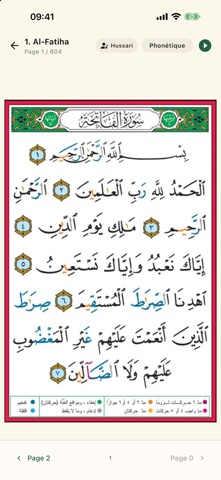 09:41
1. Al-Fatiha
Page 1 / 604
Hussari
Phonétique
سُورَةُ الْفَاتِحَةِ
بِسْمِ ٱللَّهِ ٱلرَّحْمَٰنِ ٱلرَّحِيمِ ١
ٱلْحَمْدُ لِلَّهِ رَبِّ ٱلْعَٰلَمِينَ ٢ ٱلرَّحْمَٰنِ
ٱلرَّحِيمِ ٣ مَٰلِكِ يَوْمِ ٱلدِّينِ ٤
إِيَّاكَ نَعْبُدُ وَإِيَّاكَ نَسْتَعِينُ ٥
ٱهْدِنَا ٱلصِّرَٰطَ ٱلْمُسْتَقِيمَ ٦ صِرَٰطَ
ٱلَّذِينَ أَنْعَمْتَ عَلَيْهِمْ غَيْرِ ٱلْمَغْضُوبِ
عَلَيْهِمْ وَلَا ٱلضَّآلِّينَ ٧
Page 2
1
Page 0